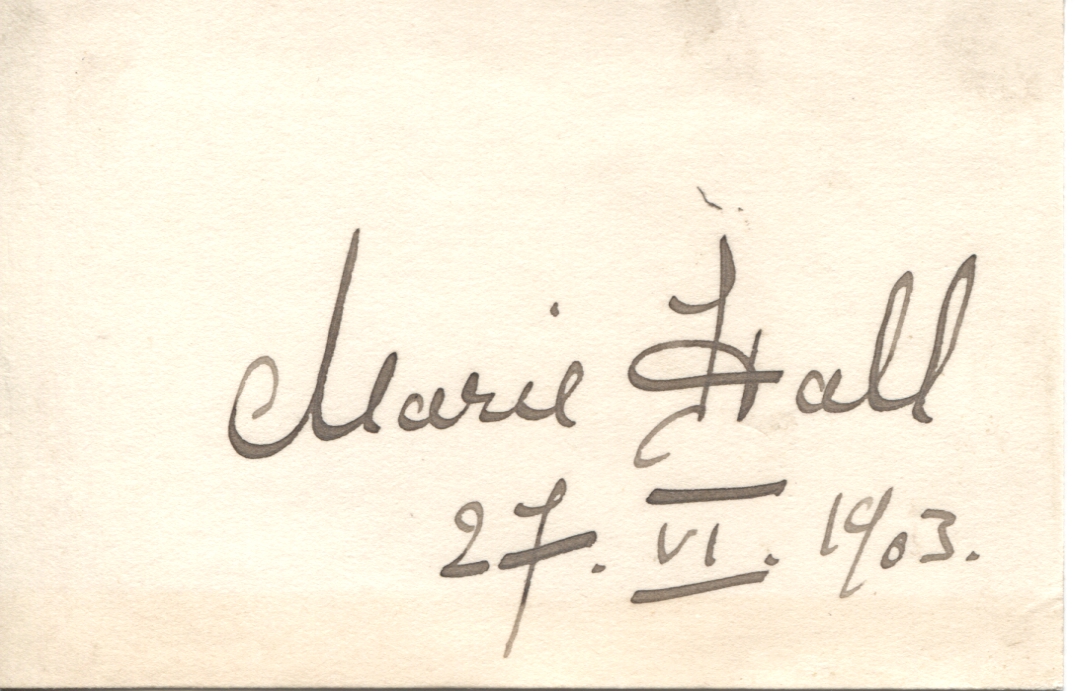 Marie Hall
27. VI. 1903.